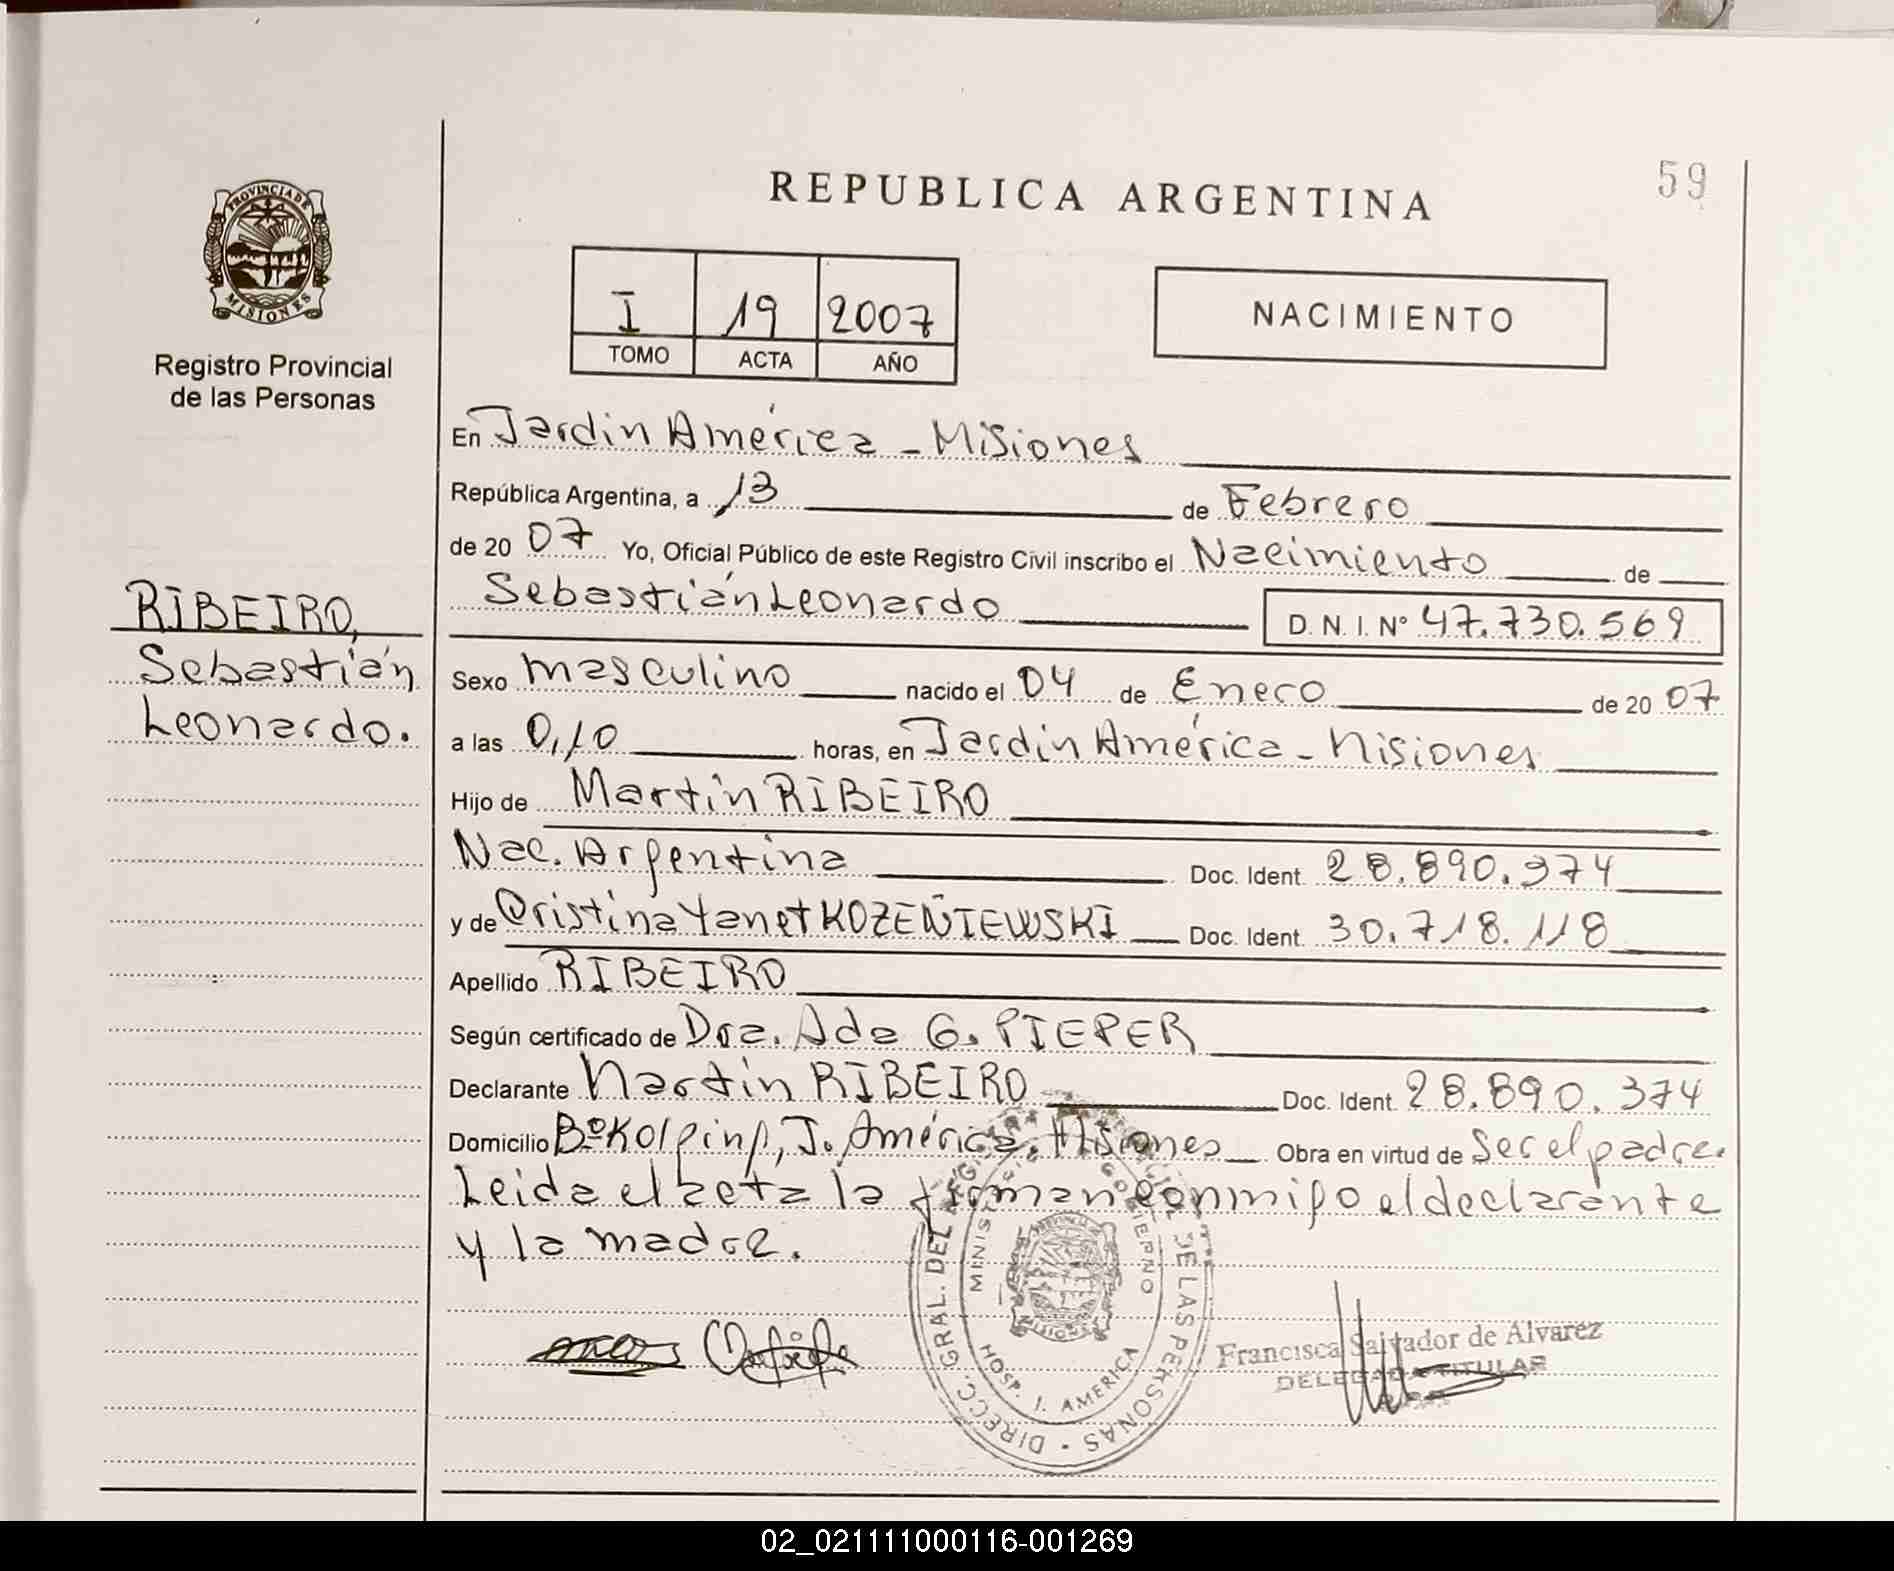 REPUBLICA ARGENTINA
59
PROVINCIA DE
MISIONES
Registro Provincial
de las Personas
I 19 2007
TOMO ACTA AÑO
NACIMIENTO
En Jardín América - Misiones
República Argentina, a 13 de Febrero
de 20 07 Yo, Oficial Público de este Registro Civil inscribo el Nacimiento de
Sebastián Leonardo D. N. I. N° 47.730.569
RIBEIRO,
Sebastián
Leonardo.
Sexo masculino nacido el 04 de Enero de 20 07
a las 0,10 horas, en Jardín América - Misiones
Hijo de Martín RIBEIRO
Nac. Argentina Doc. Ident. 28.890.374
y de Cristina Yanet KOZEÑIEWSKI Doc. Ident. 30.718.118
Apellido RIBEIRO
Según certificado de Dra. Ada G. PIEPER
Declarante Martín RIBEIRO Doc. Ident. 28.890.374
Domicilio Bº Kolping, J. América, Misiones Obra en virtud de Ser el padre.
Leida el acta la firman conmigo el declarante
y la madre.
DIRECC. GRAL. DEL REGISTRO PROVINCIAL DE LAS PERSONAS
MINISTERIO GOBIERNO
MISIONES
HOSP. J. AMERICA
Francisca Salvador de Alvarez
DELEGADA TITULAR
02_021111000116-001269